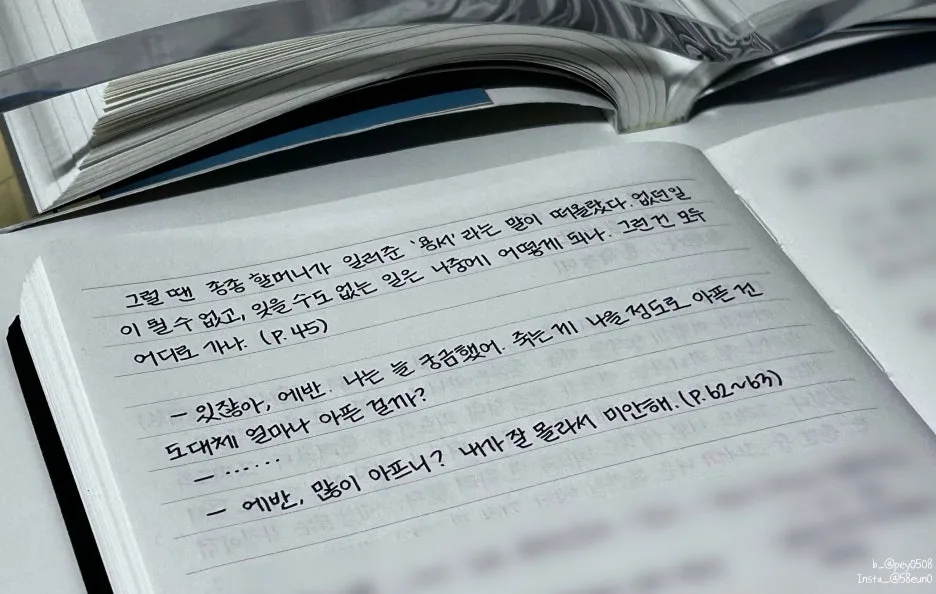 그럴 땐 종종 할머니가 일러준 '용서'라는 말이 떠올랐다. 없던 일
이 될 수 없고, 잊을 수도 없는 일은 나중에 어떻게 되나. 그런 건 모두
어디로 가나. (P.45)
- 있잖아, 에반. 나는 늘 궁금했어. 죽는 게 나을 정도로 아픈 건
도대체 얼마나 아픈 걸까?
- ······
- 에반, 많이 아프니? 내가 잘 몰라서 미안해. (P.62~63)
b_@pey0508
Insta_@58eun0